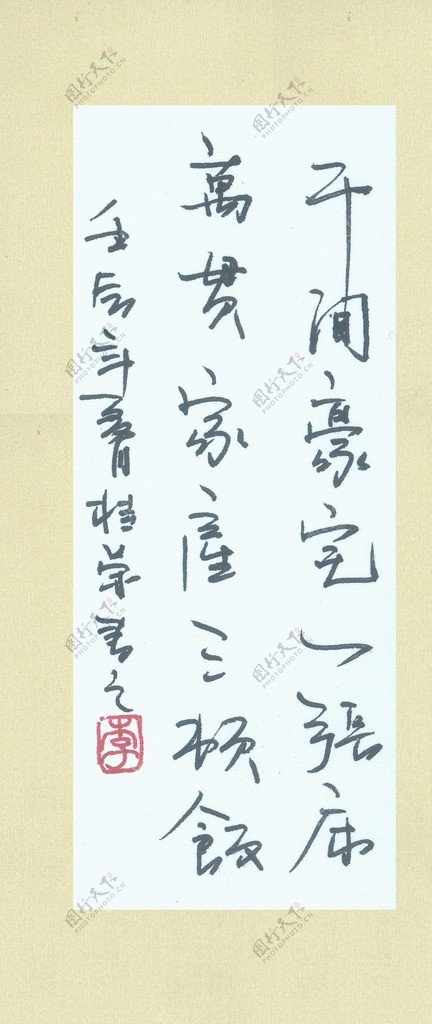 千間豪宅一張床
萬貫家產三頓飯
壬辰年桂荣書之
李
图行天下
PHOTOPHOTO.CN
图行天下
PHOTOPHOTO.CN
图行天下
PHOTOPHOTO.CN
图行天下
PHOTOPHOTO.CN
图行天下
PHOTOPHOTO.CN
图行天下
PHOTOPHOTO.CN
图行天下
PHOTOPHOTO.CN
图行天下
PHOTOPHOTO.CN